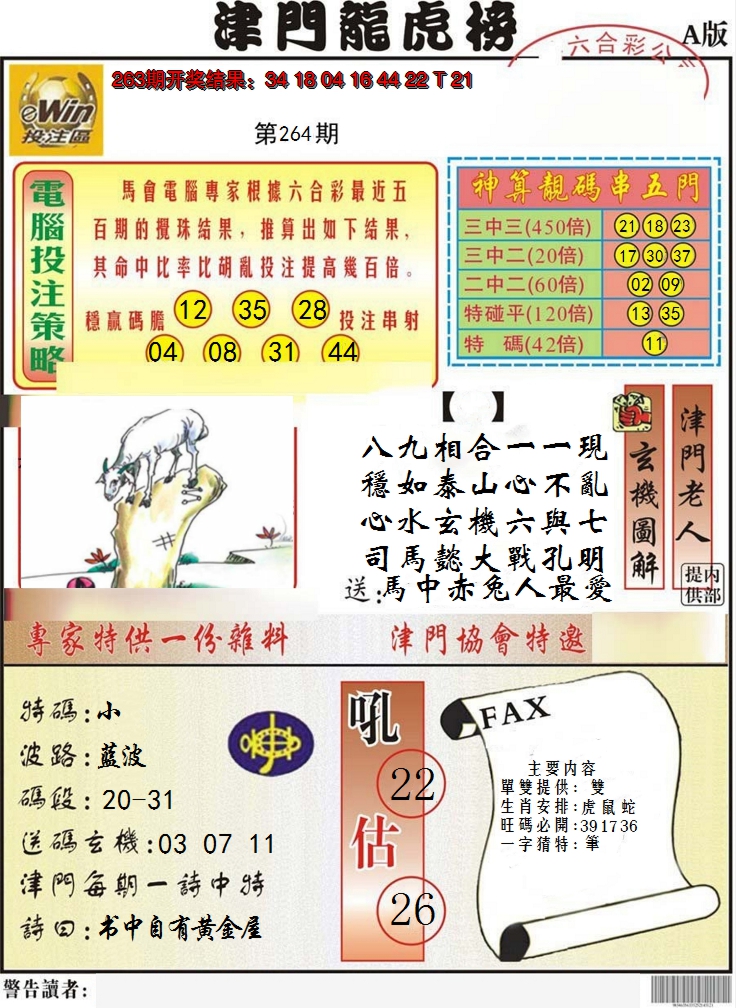 津門龍虎榜
A版
六合彩公
263期开奖结果：34 18 04 16 44 22 T 21
eWin
投注區
第264期
電腦投注策略
馬會電腦專家根據六合彩最近五
百期的攪珠结果，推算出如下结果，
其命中比率比胡亂投注提高幾百倍。
穩赢碼膽 12 35 28 投注串射
04 08 31 44
神算靚碼串五門
三中三(450倍) 21 18 23
三中二(20倍) 17 30 37
二中二(60倍) 02 09
特碰平(120倍) 13 35
特 碼(42倍) 11
【 】
八九相合一一現
穩如泰山心不亂
心水玄機六與七
司馬懿大戰孔明
送:馬中赤兔人最愛
玄機圖解
津門老人
内部提供
專家特供一份雜料
津門協會特邀
特碼:小
波路:藍波
碼段:20-31
送碼玄機:03 07 11
津門每期一詩中特
詩曰:书中自有黄金屋
吼 22
估 26
FAX
主要内容
單雙提供: 雙
生肖安排:虎鼠蛇
旺碼必開:391736
一字猜特:筆
警告讀者: